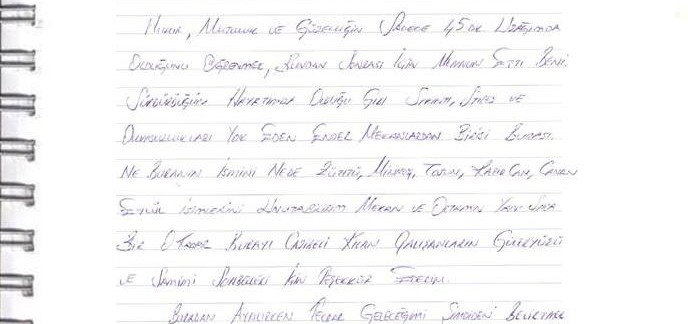 Huzur, Mutluluk ve Güzelliğin Sadece 45 dk Uzağımda
Olduğunu Öğrenmek, Bundan Sonrası İçin Memnun Etti Beni.
Sürdürdüğüm Hayatımda Olduğu Gibi Sıkıntı, Stres ve
Olumsuzlukları Yok Eden Ender Mekanlardan Birisi Burası.
Ne Buranın İsmini Nede
İsimlerini Unutabilirim Mekan ve Ortamın Yanı Sıra
Bir O Kadar Burayı Cazibeli Kılan Çalışanların Güleryüzü
ve Samimi Sohbetleri İçin Teşekkür Ederim.
Buradan Ayrılırken Tekrar Geleceğimi Şimdiden Belirtmek